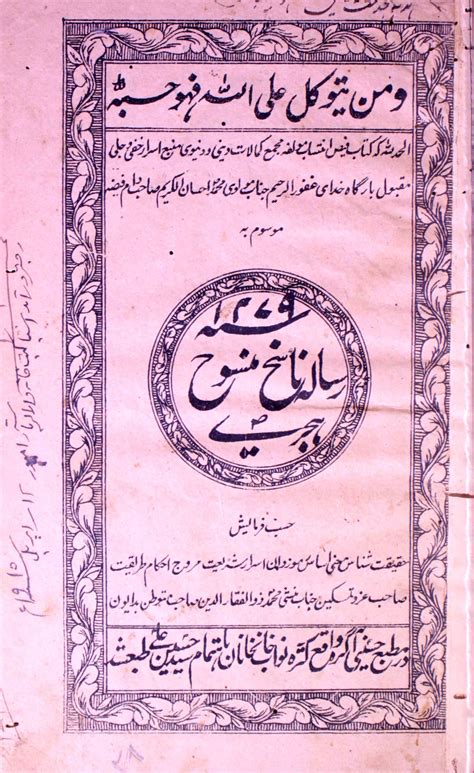 ومن یتوکل علی اللہ فہو حسبہ
الحمد للہ کہ کتاب فیض انتساب مولفہ مجمع کمالات دینی و دنیوی منبع اسرار خفی و جلی
مقبول بارگاہ خدای غفور الرحیم جناب مولوی محمد احسان الکریم صاحب دام فیضہ
موسوم بہ
سنہ ۱۲۷۹
رسالہ ناسخ منسوخ
ہجری
حسب فرمایش
حقیقت شناس حق اساس موز دان اسرار شریعت مروج احکام طریقت
صاحب عز و تمکین جناب منشی محمد ذوالفقار الدین صاحب متوطن بدایون
در مطبع حسینی آگرہ واقع کٹرہ نواب خانخانان باہتمام سید حسین علی طبع شد